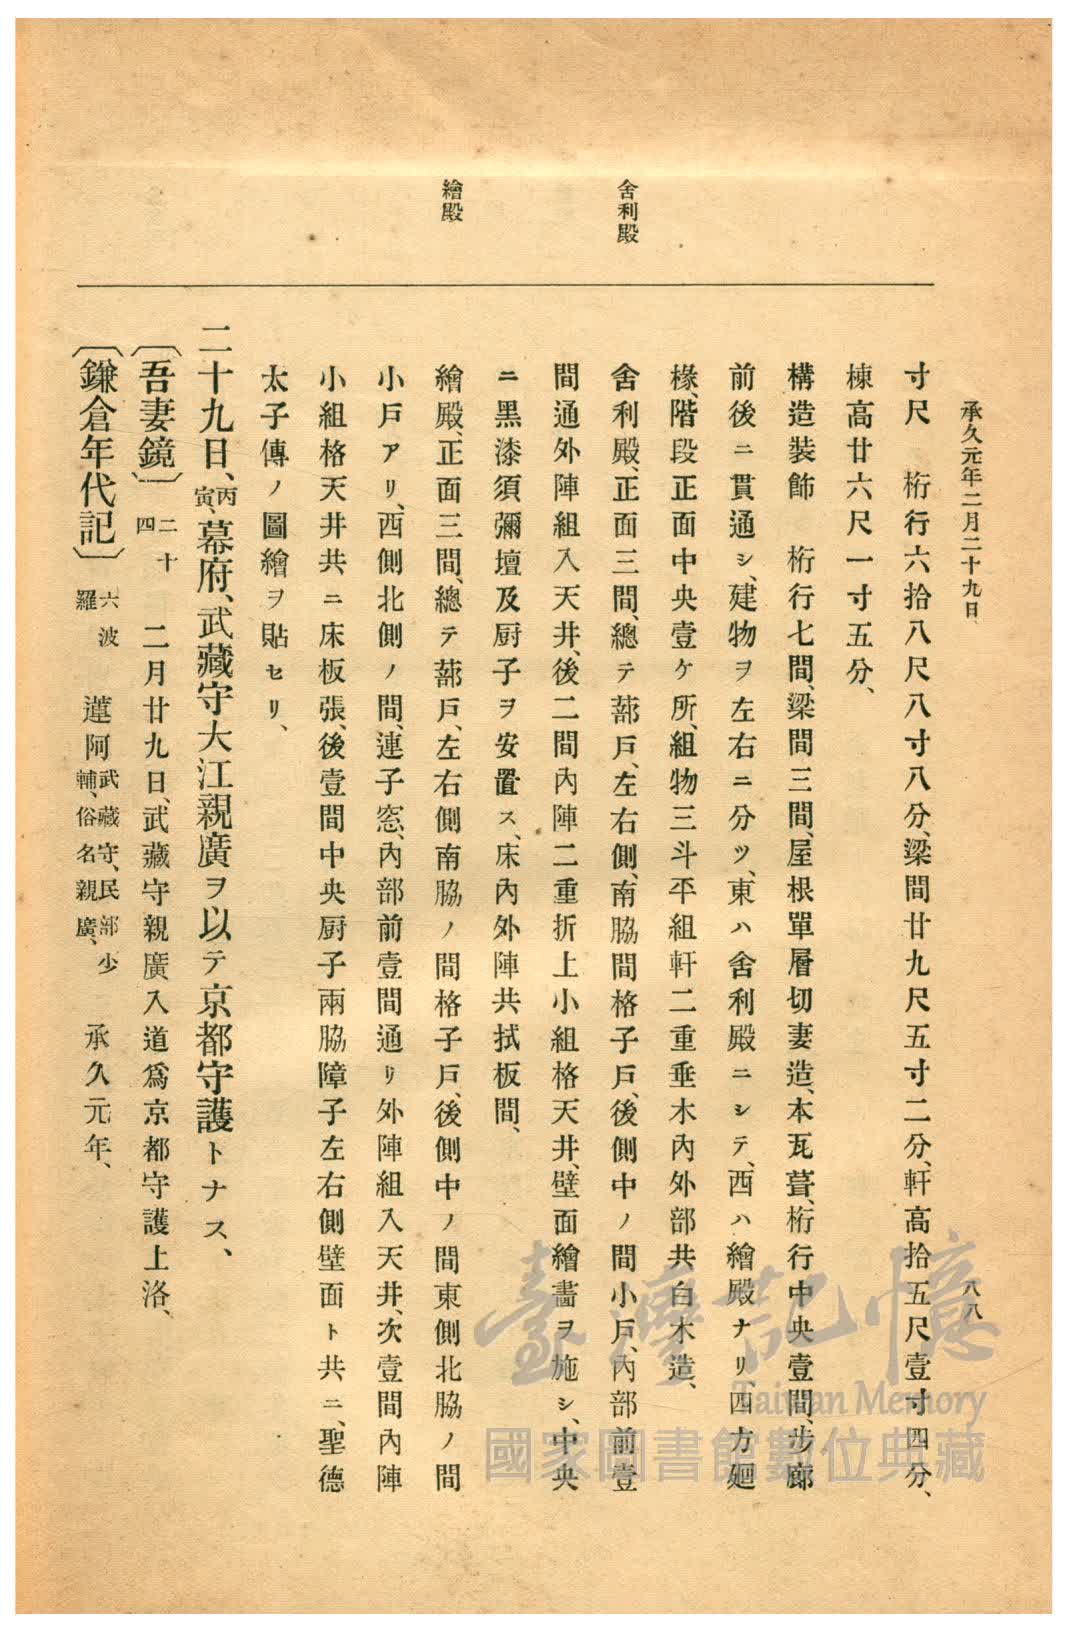 承久元年二月二十九日、
八八
舍利殿
繪殿
寸尺　桁行六拾八尺八寸八分、梁間廿九尺五寸二分、軒高拾五尺壹寸四分、
棟高廿六尺一寸五分、
構造裝飾　桁行七間、梁間三間、屋根單層切妻造、本瓦葺、桁行中央壹間、步廊
前後ニ貫通シ、建物ヲ左右ニ分ツ、東ハ舍利殿ニシテ、西ハ繪殿ナリ、四方廻
椽、階段正面中央壹ケ所、組物三斗平組軒二重垂木內外部共白木造、
舍利殿、正面三間、總テ蔀戶、左右側、南脇間格子戶、後側中ノ間小戶、內部前壹
間通外陣組入天井、後二間內陣二重折上小組格天井、壁面繪畵ヲ施シ、中央
ニ黑漆須彌壇及厨子ヲ安置ス、床內外陣共拭板間、
繪殿、正面三間、總テ蔀戶、左右側南脇ノ間格子戶、後側中ノ間東側北脇ノ間
小戶アリ、西側北側ノ間、連子窓、內部前壹間通リ外陣組入天井、次壹間內陣
小組格天井共ニ床板張、後壹間中央厨子兩脇障子左右側壁面ト共ニ、聖德
太子傳ノ圖繪ヲ貼セリ、
二十九日、丙寅、幕府、武藏守大江親廣ヲ以テ京都守護トナス、
〔吾妻鏡〕二十四　二月廿九日、武藏守親廣入道爲京都守護上洛、
〔鎌倉年代記〕六波羅　蓮阿武藏守、民部少輔、俗名親廣、　承久元年、
臺灣記憶
Taiwan Memory
國家圖書館數位典藏